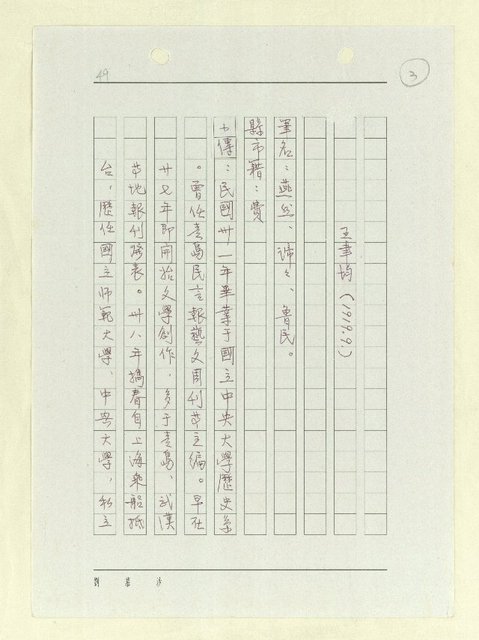 49
3
王聿均(1919.9.)
筆名：燕絲、諦諦、魯民。
縣市籍：費
小傳：民國卅一年畢業于國立中央大學歷史系
。曾任青島民言報藝文周刊革主編。早在
廿七年即開始文學創作，多于青島、武漢
等地報刊發表。卅八年攜眷自上海乘船抵
台，歷任國立師範大學、中央大學、私立